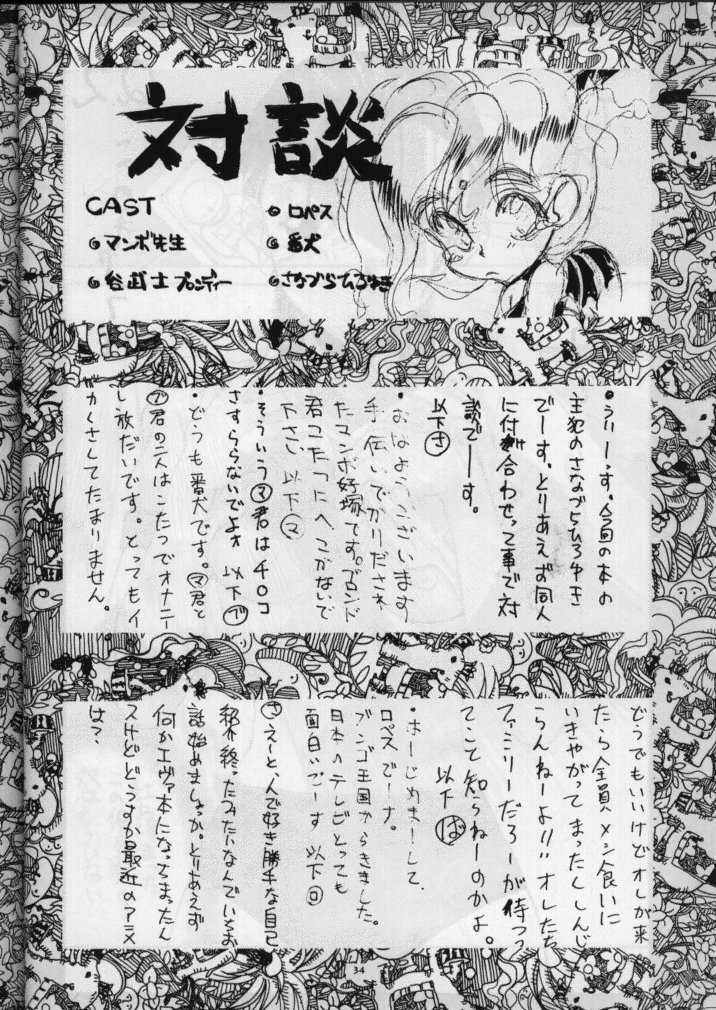 対談
CAST
マンボ先生
谷武士ブロンディー
ロペス
番犬
さなづらひろゆき
・うぃーっす、今回の本の
主犯のさなづらひろゆき
でーす、とりあえず同人
に付き合わせって事で対
談でーす。
以下さ
・おはよーうございます
手伝いでかりだされ
たマンボ好塚です。ブロンド
君こたつにへこかないで
下さい 以下マ
・そういうマ君はチ○コ
さすらないでよォ 以下ブ
・どうも番犬です。マ君と
ブ君の二人はこたつでオナニー
し放だいです。とってもイ
カくさくてたまりません。
どうでもいいけどオレが来
たら全員メシ食いに
いきやがってまったくしんじ
らんねーよ!!!オレたち
ファミリーだろーが待つっ
てこと知らねーのかよ。
以下ば
・はーじめまーして、
ロペスでーす。
ブンゴ王国からきました。
日本のテレビとっても
面白いでーす 以下ロ
さ えーと、んで好き勝手な自己
紹介終ったみたいなんでいちお
話始めましょっか。とりあえず
何かエヴァ本になってまったん
スけどどうすか最近のアニメ
は?
34